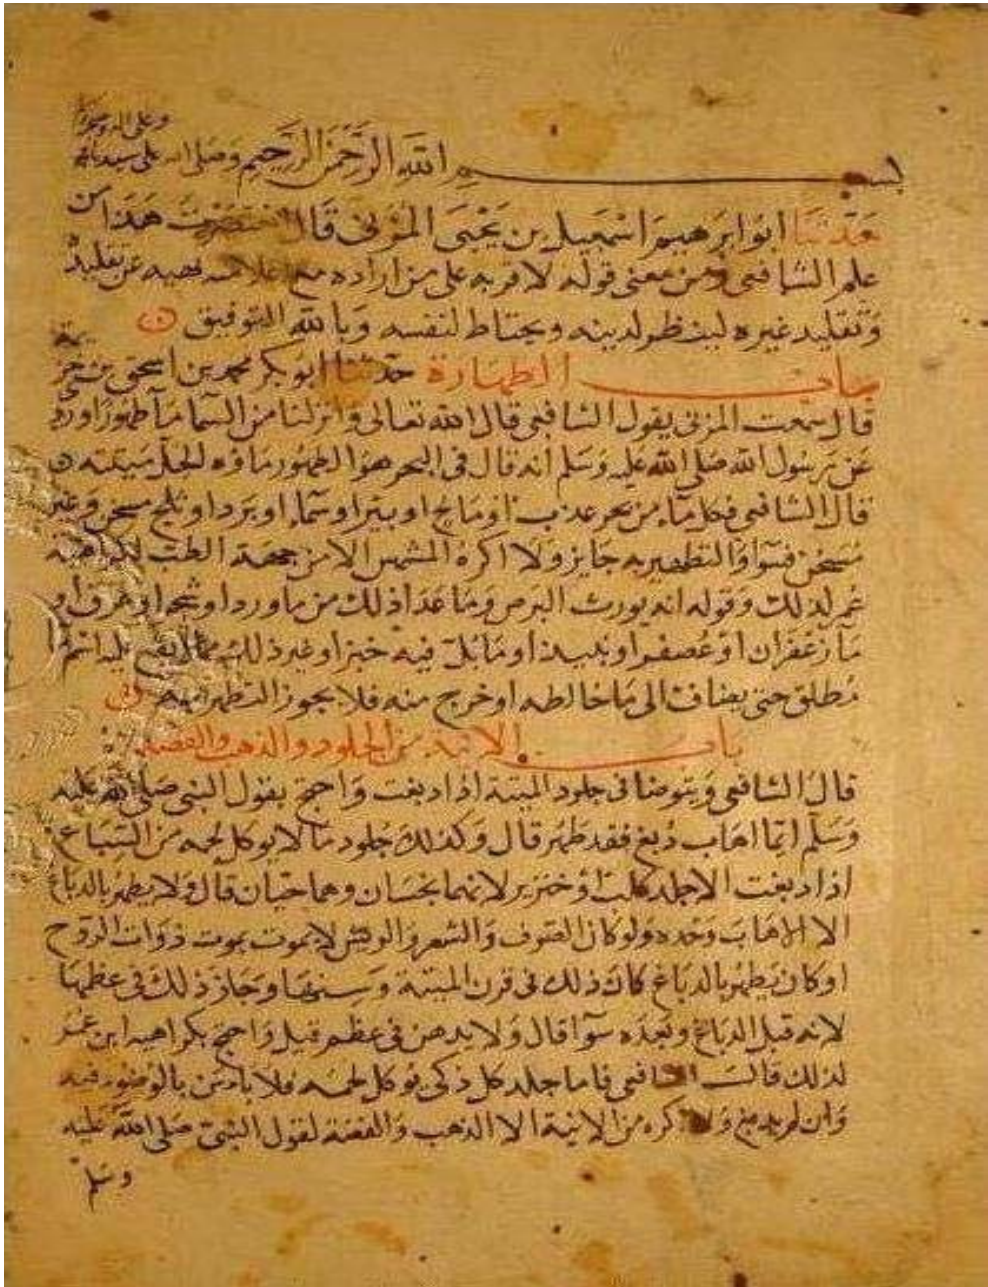 وعلى اله وصحبه
بسم الله الرحمن الرحيم وصلى الله على سيدنا
حدثنا ابو ابرهيم اسمعيل بن يحيى المزني قال اختصرت هذا من
علم الشافعي ومن معنى قوله لاقربه على من اراده مع اعلامه نهيه عن تقليده
وتقليد غيره لينظر لدينه ويحتاط لنفسه وبالله التوفيق
باب الطهارة حدثنا ابو بكر محمد بن اسحق بن خزيمة
قال سمعت المزني يقول الشافعي قال الله تعالى وانزلنا من السما مآ طهورا وروي
عن رسول الله صلى الله عليه وسلم انه قال في البحر هو الطهور ماؤه الحل ميتته
قال الشافعي فكل ماء من بحر عذب او مالح او بير او سماء او برد او ثلج مسخن وغير
مسخن فسوآ والتطهير به جايز ولا اكره المشمس الا من جهة الطب لكراهية
عمر لذلك وقوله انه يورث البرص وما عدا ذلك من ما ورد او شجر او عرق او
مآ زعفران او عصفر او نبيذ او ما بل فيه خبز او غير ذلك مما لا يقع عليه اسم مآ
مطلق حتى يضاف الى ما خالطه او خرج منه فلا يجوز التطهر به
باب الانية من الجلود والذهب والفضة
قال الشافعي ويتوضا في جلود الميتة اذا دبغت واحتج بقول النبي صلى الله عليه
وسلم ايما اهاب دبغ فقد طهر قال وكذلك جلود ما لا يوكل لحمه من السباع
اذا دبغت الا جلد كلب او خنزير لانهما نجسان وهما حيان قال ولا يطهر بالدباغ
الا الاهاب وحده ولو كان الصوف والشعر والريش لا يموت بموت ذوات الروح
او كان يطهر بالدباغ كان ذلك في قرن الميتة وسنها وجاز ذلك في عظمها
لانه قبل الدباغ وبعده سوآ قال ولا يدهن في عظم فيل واحتج بكراهية ابن عمر
لذلك قال الشافعي فاما جلد كل ذكي يوكل لحمه فلا باس بالوضوء فيه
وان لم يدبغ ولا اكره من الانية الا الذهب والفضة لقول النبي صلى الله عليه
وسلم